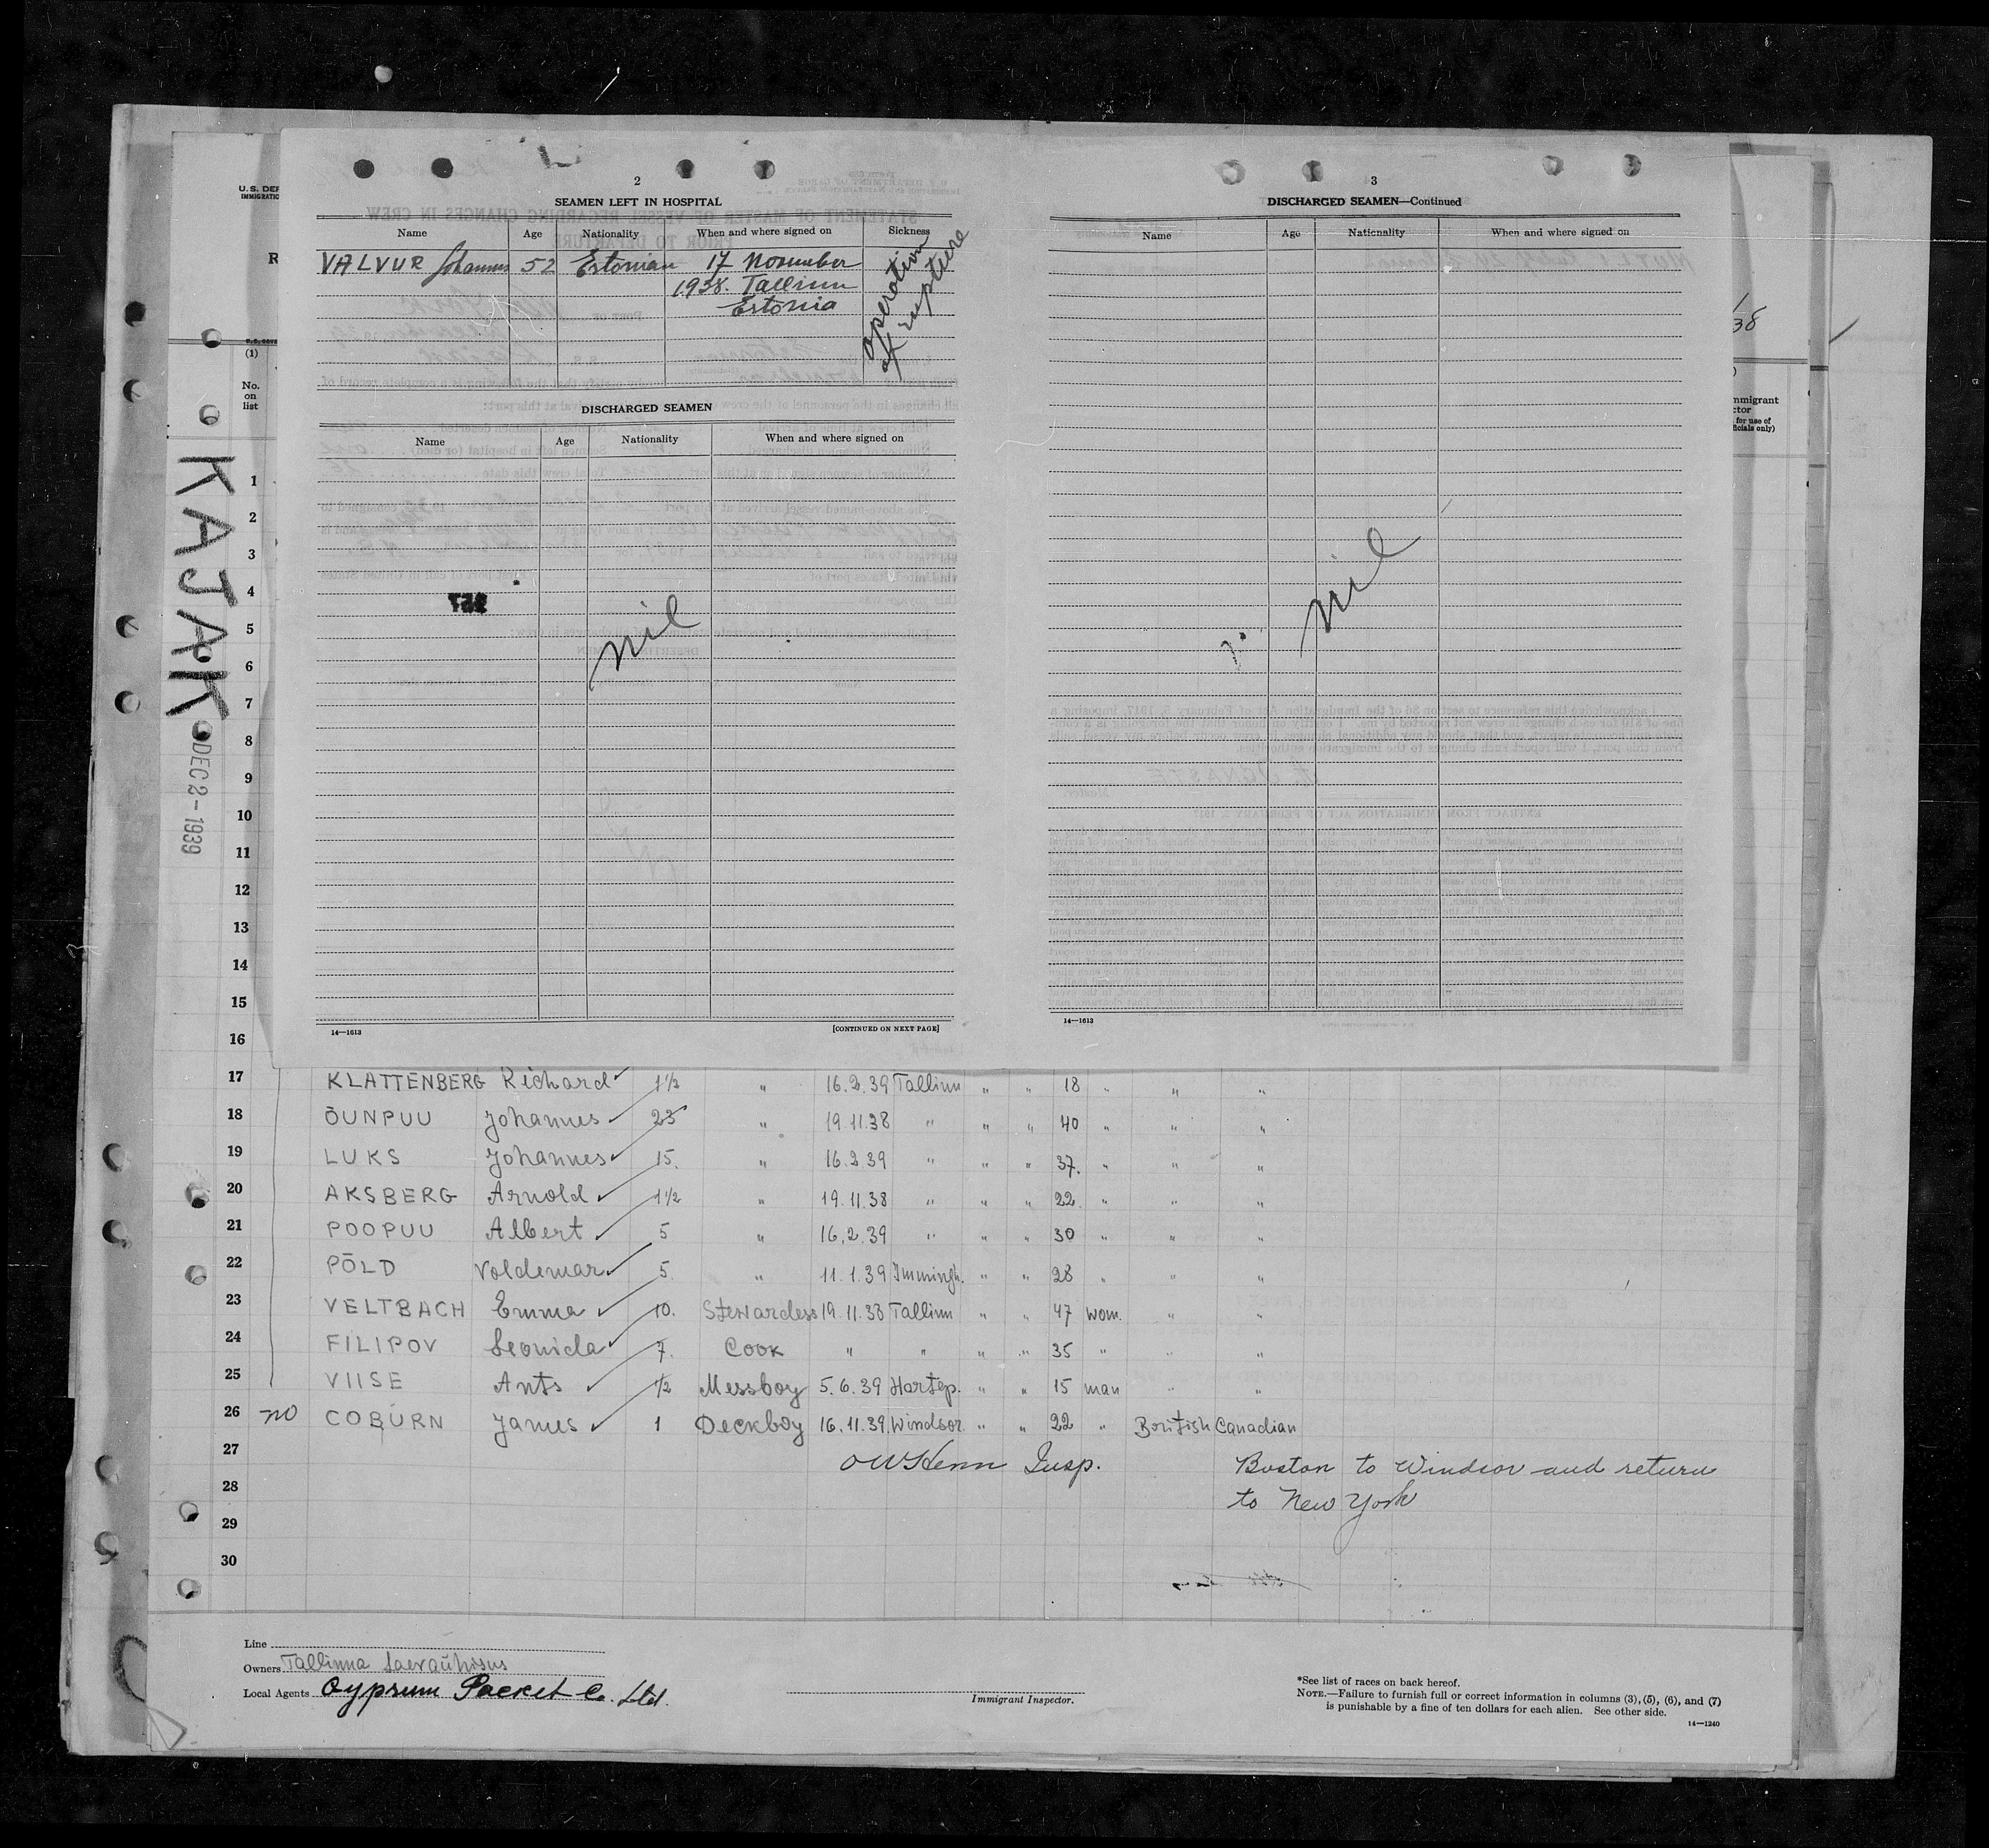 U.S. DEP
IMMIGRATIO
2
SEAMEN LEFT IN HOSPITAL
Name Age Nationality When and where signed on Sickness
VALVUR Johannes 52 Estonian 17 November
1938. Tallinn
Estonia
operation
of rupture
DISCHARGED SEAMEN
Name Age Nationality When and where signed on
nil
14—1613 [CONTINUED ON NEXT PAGE]
3
DISCHARGED SEAMEN—Continued
Name Age Nationality When and where signed on
nil
14—1613
38
mmigrant
ctor
for use of
ficials only)
(1)
No.
on
list
KAJAK
DEC 2 - 1939
1
2
3
4
5
6
7
8
9
10
11
12
13
14
15
16
17 KLATTENBERG Richard 1½ " 16.2.39 Tallinn " " 18 " " "
18 ÕUNPUU Johannes 23 " 19.11.38 " " " 40 " " "
19 LUKS Johannes 15. " 16.2.39 " " " 37. " " "
20 AKSBERG Arnold 1½ " 19.11.38 " " " 22 " " "
21 POOPUU Albert 5 " 16.2.39 " " " 30 " " "
22 PÕLD Voldemar 5. " 11.1.39 Immingh. " " 28 " " "
23 VELTBACH Emma 10. Stewardess 19.11.38 Tallinn " " 47 wom. " "
24 FILIPOV Leonida 7. Cook " " " " 35 " " "
25 VIISE Ants ½ Messboy 5.6.39 Hartlep. " " 15 man " "
26 no COBURN James 1 Deckboy 16.11.39 Windsor. " " 22 " British Canadian
27 Insp. Boston to Windsor and return
28 to New York
29
30
Line
Owners Tallinna Laevaühisus
Local Agents Gypsum Packet Co. Ltd.
Immigrant Inspector.
*See list of races on back hereof.
NOTE.—Failure to furnish full or correct information in columns (3), (5), (6), and (7)
is punishable by a fine of ten dollars for each alien. See other side.
14—1240